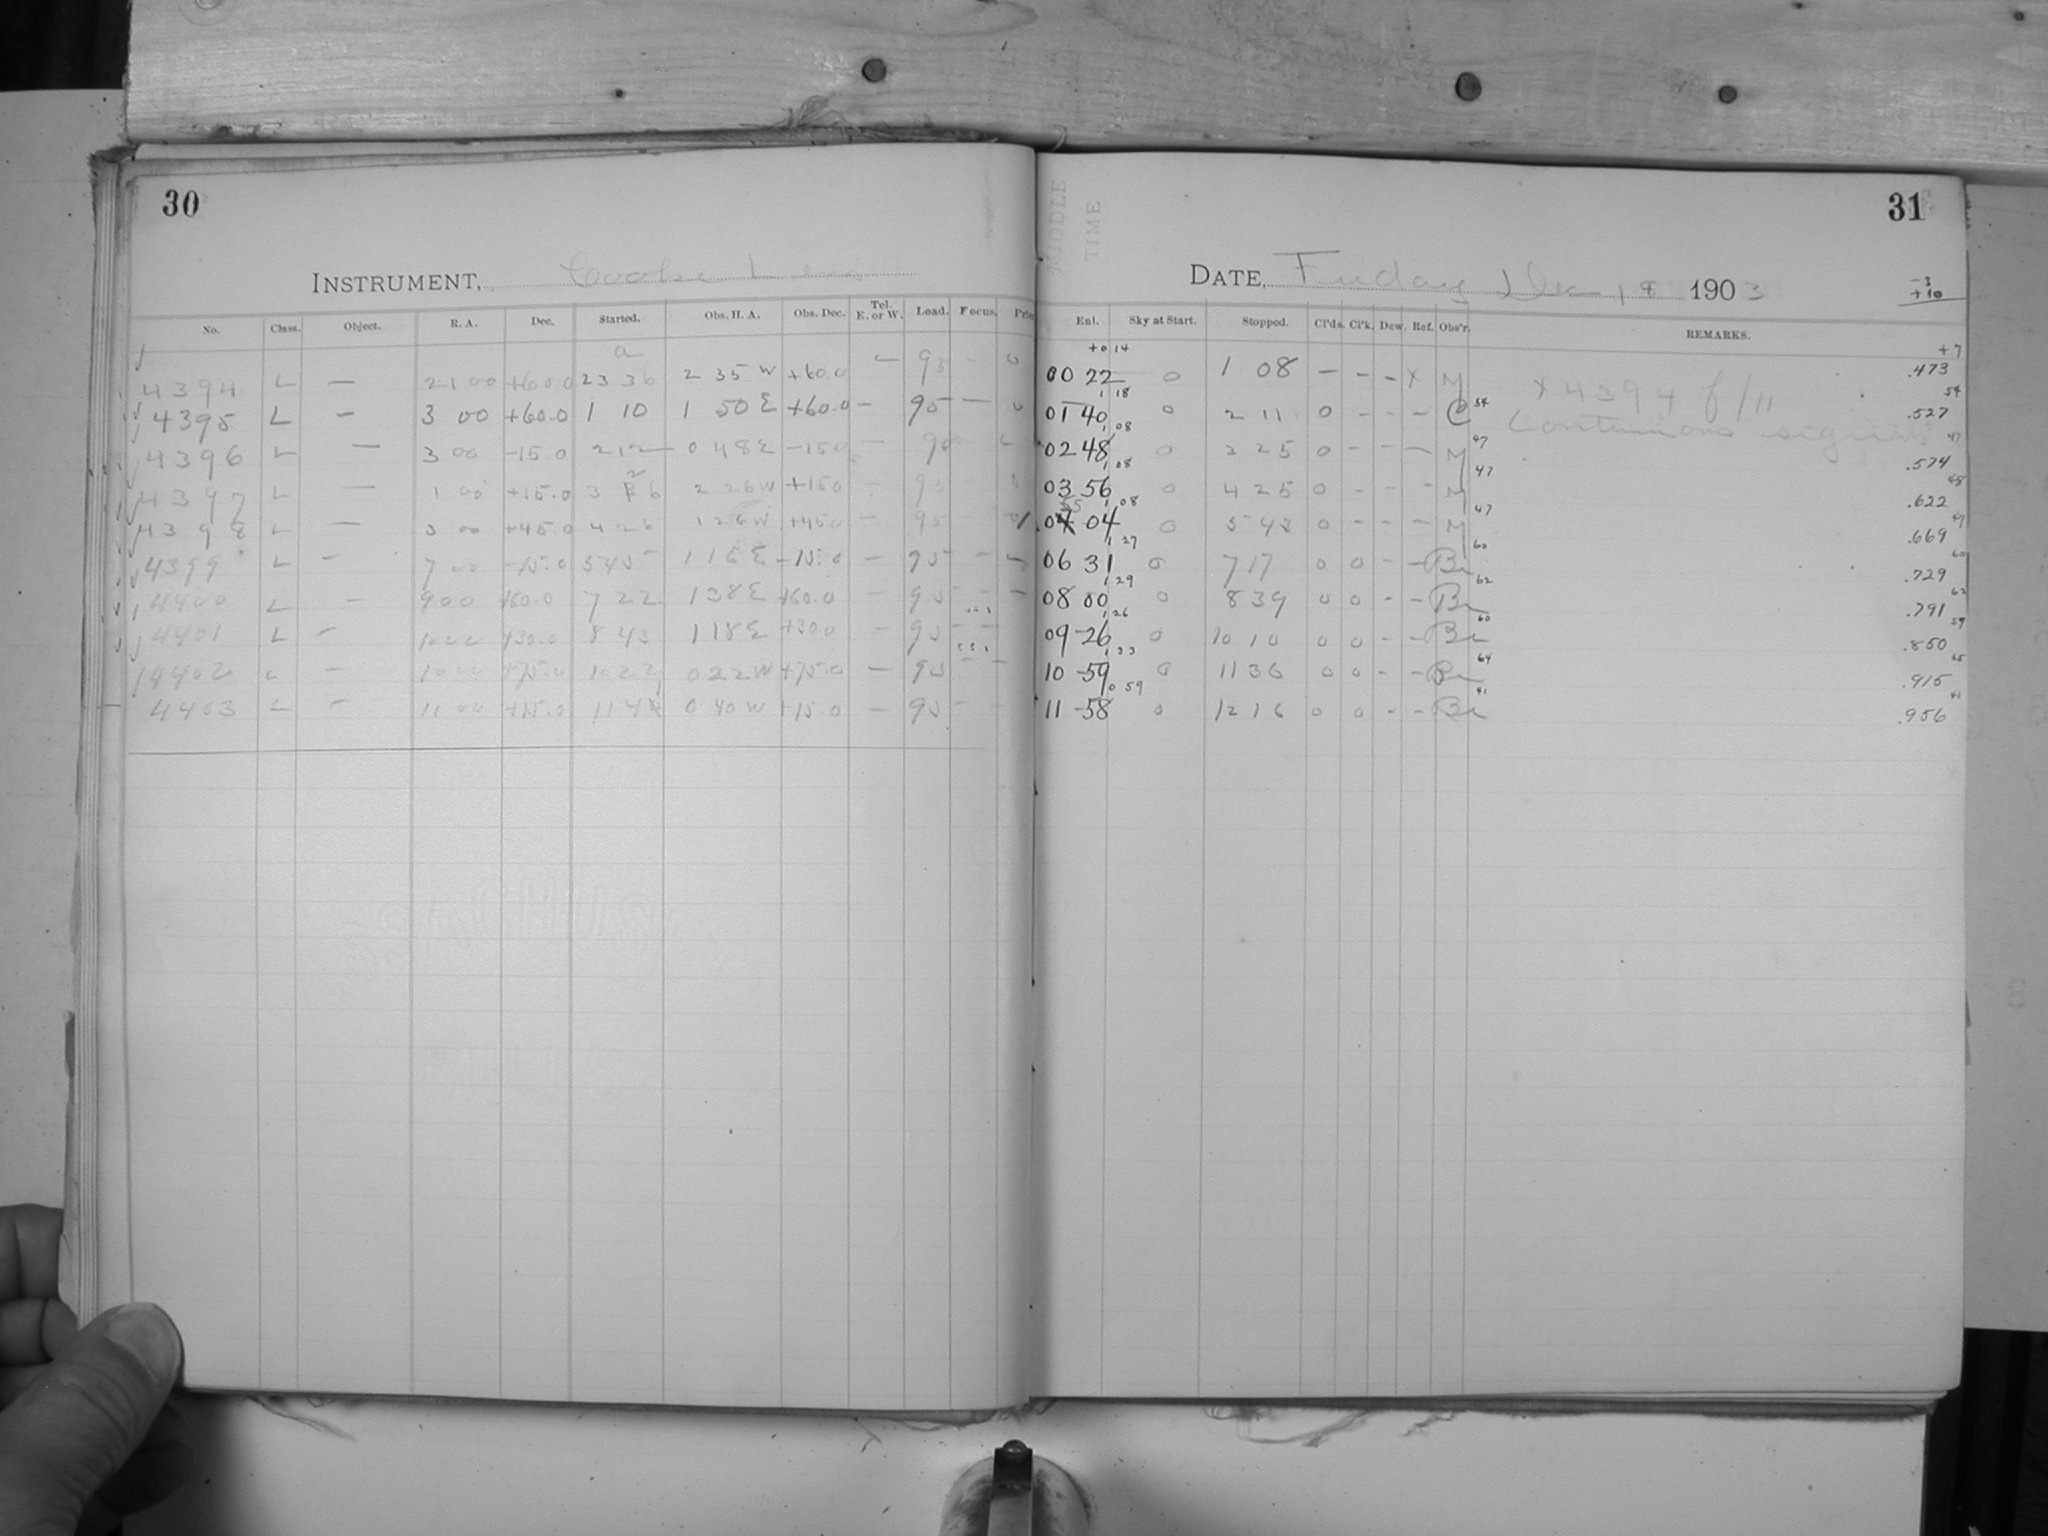 30
INSTRUMENT, Cooke Lens
No. Class. Object. R. A. Dec. Started. Obs. H. A. Obs. Dec. Tel. E. or W. Load. Focus.
4394 L — 21 00 +60.0 23 36 2 35 W +60.0 — 95 —
4395 L — 3 00 +60.0 1 10 1 50 E +60.0 — 95 —
4396 L — 3 00 -15.0 2 12 0 48 E -15.0 — 90
4397 L — 1 00 +15.0 3 26 2 26 W +15.0 — 95
4398 L — 3 00 +45.0 4 26 1 26 W +45.0 — 95
4399 L — 7 00 -15.0 5 45 1 15 E -15.0 — 95 —
4400 L — 9 00 +60.0 7 22 1 38 E +60.0 — 95 —
4401 L — 10 00 +30.0 8 43 1 18 E +30.0 — 95 —
4402 — 10 00 +75.0 10 22 0 22 W +75.0 — 95 —
4403 L — 11 00 +15.0 11 44 0 40 W +15.0 — 95 —
31
MIDDLE TIME
DATE, Friday Dec 18 1903
-3
+10
Enl. Sky at Start. Stopped. Cl'ds. Cl'k. Dew. Ref. Obs'r. REMARKS.
+0 14 +7
00 22 0 1 08 — — — X M X 4394 f/11 .473
1 18 54
01 40 0 2 11 0 - - - C 54 Continuous signals .527
1 08 47
02 48 0 2 25 0 - - — M 47 .574
1 08 48
03 56 0 4 25 0 - - - M 47 .622
55 1 08 47
04 04 0 5 43 0 - - - M 47 .669
1 27 60
06 31 0 7 17 0 0 - - Br 60 .729
1 29 62
08 00 0 8 39 0 0 - - Br 62 .791
1 26 59
09 26 0 10 10 0 0 - - Br 60 .850
1 33 65
10 59 0 11 36 0 0 - - Br 64 .915
0 59 41
11 58 0 12 16 0 0 - - Br 41 .956